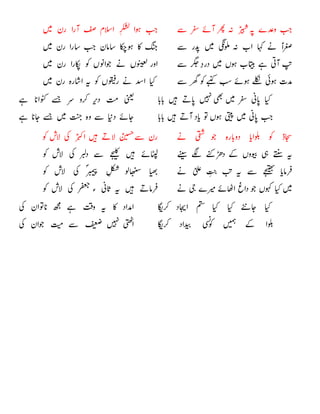 جب وعدے پہ شبیر نہ پھر آئے سفر سے جب ہوا لشکر اسلام صف آرا رن میں
صغراؑ نے کہا اب نہ ملونگی میں پدر سے جنگ کا ہوچکا سامان جب سارا رن میں
تپ آتی ہے بیتاب ہوں میں دردِ جگر سے اور لعینوں نے جوانوں کو پکارا رن میں
مدت ہوئی نکلے ہوئے سب کنبے کو گھر سے کیا اسد نے رفیقوں کو یہ اشارہ رن میں
کیا پانی سفر میں بھی نہیں پاتے ہیں بابا یعنی مت دیر کرو سر جسے کٹوانا ہے
جب پانی میں پیتی ہوں تو یاد آتے ہیں بابا جائے دنیا سے وہ جنت میں جسے جانا ہے
سجادؑ کو بلوایا دوبارہ جو شقی نے رن سے حسینؑ لاتے ہیں اکبرؑ کی لاش کو
یہ سنتے ہی بیووں کے دھڑکنے لگے سینے لپٹائے ہیں کلیجے سے دلبر کی لاش کو
فرمایا بھتیجے سے یہ تب بنتِ علی نے بھیا سنبھالو شکلِ پیمبرؐ کی لاش کو
کیا میں کہوں جو داغ اٹھائے میرے جی نے فرماتے ہیں یہ ثانیء جعفرؑ کی لاش کو
کیا جانئے کیا کیا ستم ایجاد کریگا امداد کا یہ وقت ہے مجھ ناتوان کی
بلوا کے ہمیں کونسی بیداد کریگا اٹھتی نہیں ضعیف سے میت جوان کی